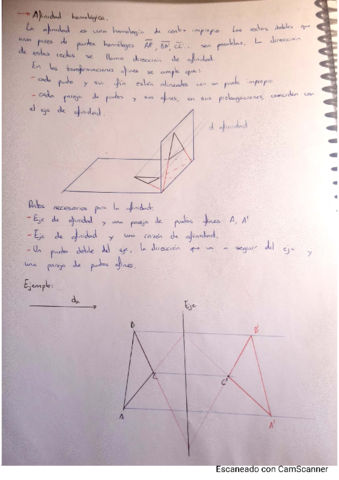 → Afinidad homológica.
La afinidad es una homología de centro impropio. Las rectas dobles que
unen pares de puntos homólogos AA', BB', CC'... son paralelas. La dirección
de estas rectas se llama dirección de afinidad.
En las transformaciones afines se cumple que:
- cada punto y su afín están alineados con un punto impropio
- cada pareja de puntos y sus afines, en sus prolongaciones, coinciden con
el eje de afinidad.
d afinidad
Datos necesarios para la afinidad:
- Eje de afinidad y una pareja de puntos afines A, A'
- Eje de afinidad y una razón de afinidad.
- Un punto doble del eje, la dirección que va a seguir del eje y
una pareja de puntos afines.
Ejemplo:
Eje
B B'
C C'
A A'
Escaneado con CamScanner